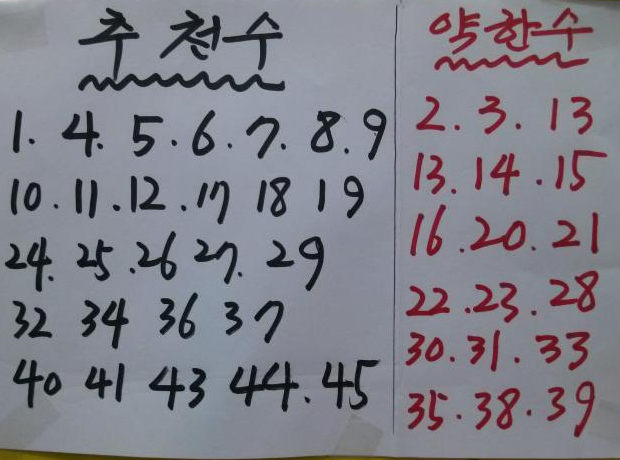 추천수
1. 4. 5. 6. 7. 8. 9
10. 11. 12. 17 18 19
24. 25. 26 27. 29
32 34 36 37
40 41 43 44. 45
약한수
2. 3. 13
13. 14. 15
16. 20. 21
22. 23. 28
30. 31. 33
35. 38. 39